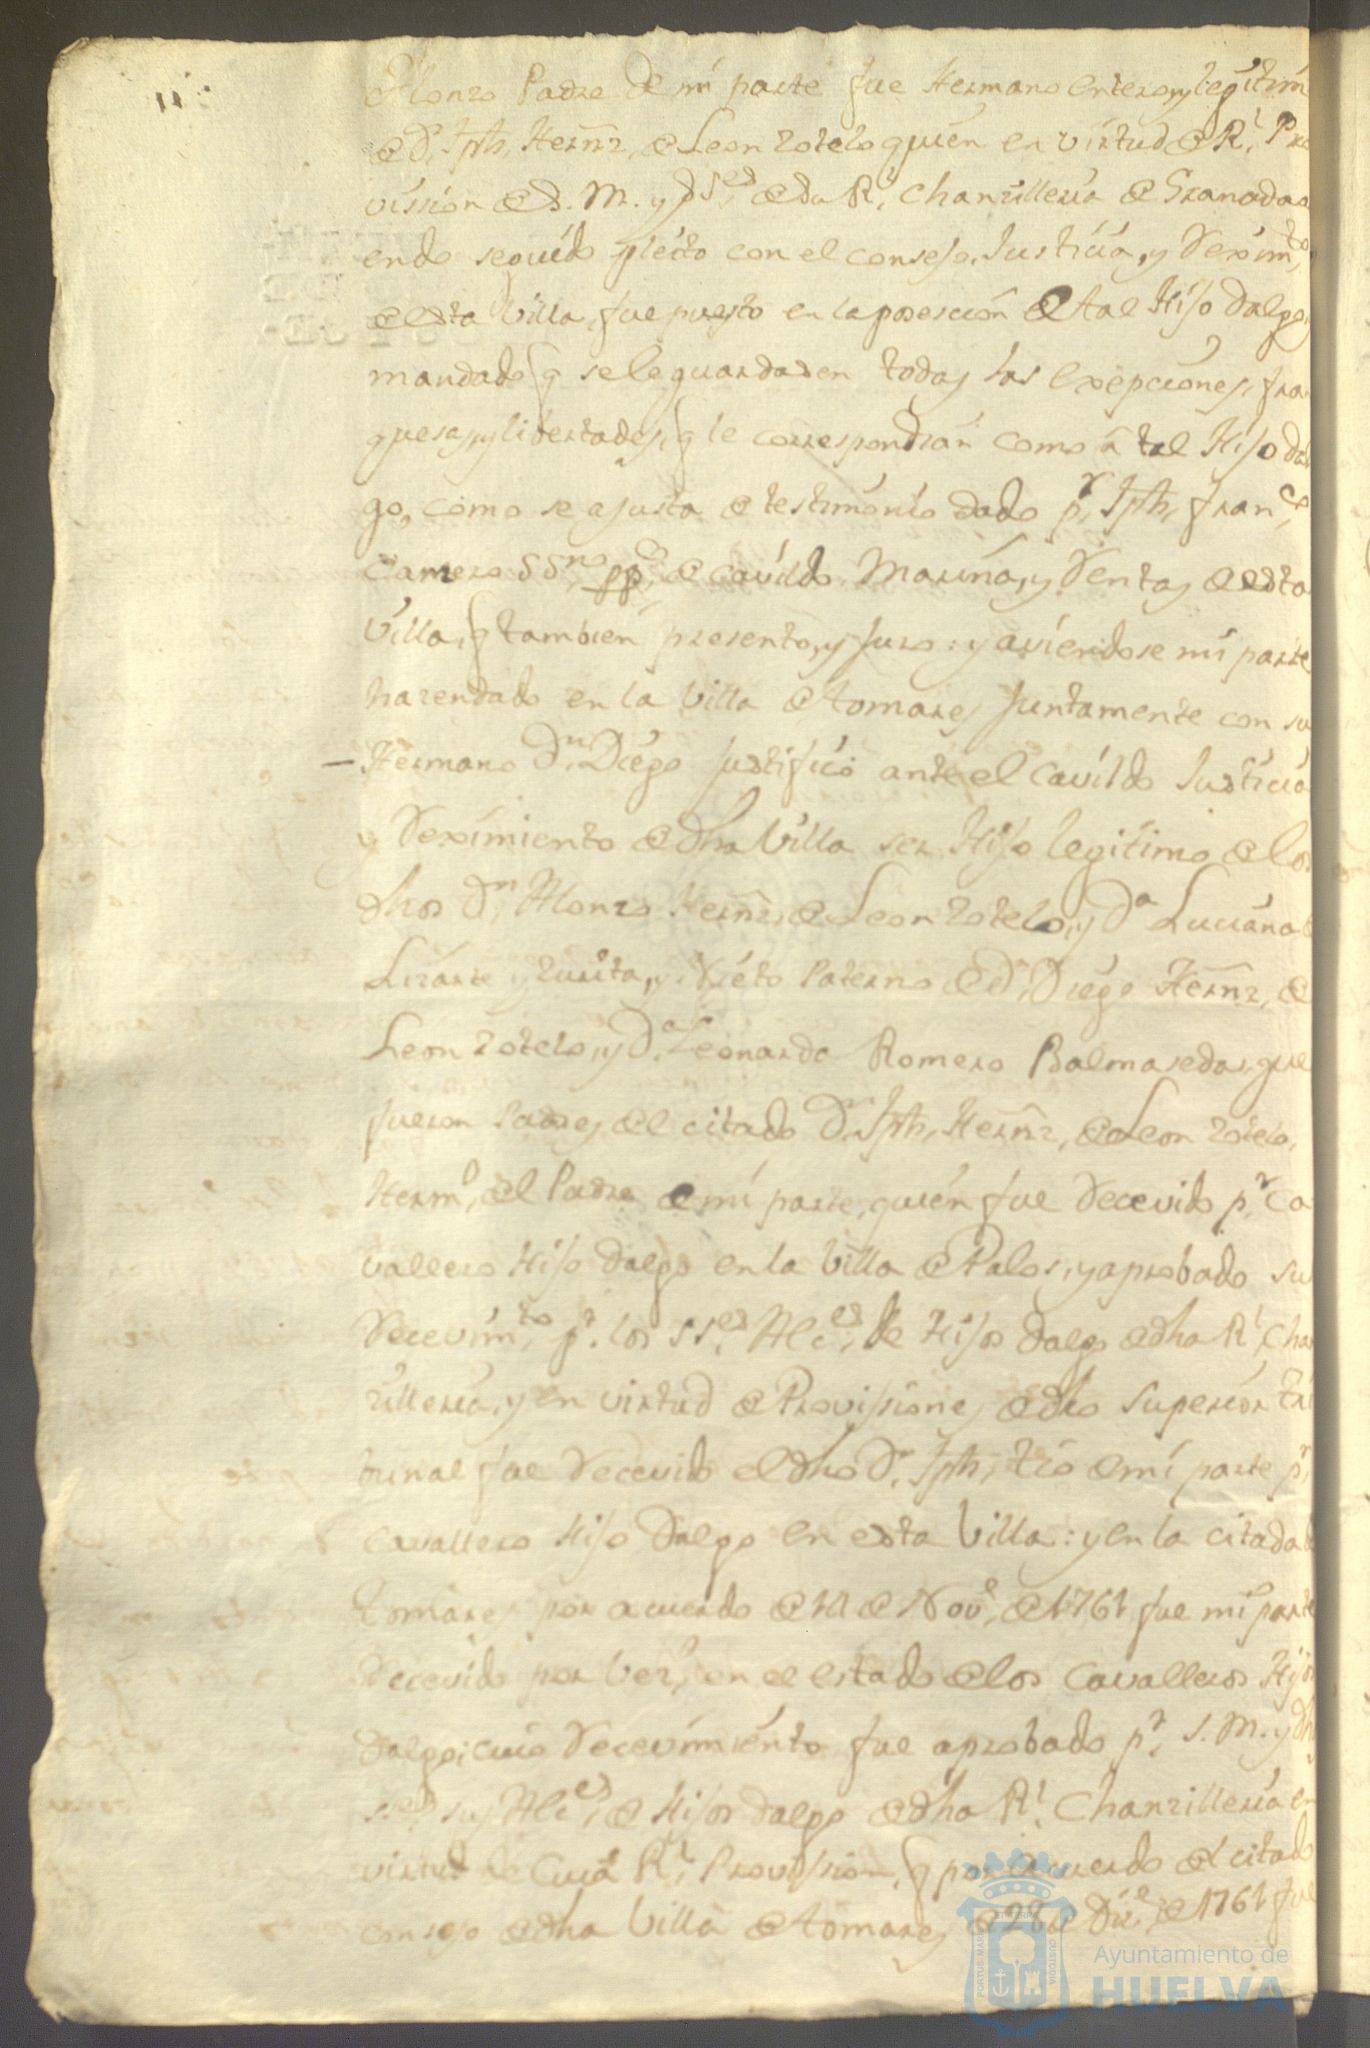 Alonso Padre de mi parte fue Hermano entero, y legitim
de Dn. Jph. Hernz. de Leon Sotelo quien en virtud de Rl. Pro
vission de S. M. y Ses. de su Rl. Chanzilleria de Granada a
endo seguido pleito con el consejo, Justicia, y Reximto.
de esta Villa, fue puesto en la posescion de tal Hijo dalgo,
mandado q se le guardasen todas las exepciones, fran
quesas, y libertades, q le correspondian como a tal Hijo dal
go, como se ajusta de testimonio dado pr. Jph. Franco.
Camero SSno. ppco. de Cavildo, Marina, y Rentas de esta
Villa, q tambien presento, y juro: y aviendose mi parte
hazendado en la Villa de Tomares juntamente con su
Hermano Dn. Diego justificó ante el Cavildo Justicia
y Reximiento de dha Villa ser Hijo legitimo de los
dhos Dn. Alonso Hernz. de Leon Sotelo, y Da. Luciana
Lizarte y Zurita, y Nieto Paterno de Dn. Diego Hernz. de
Leon Sotelo, y Da. Leonarda Romero Balmaseda, que
fueron Padres del citado Dn. Jph. Hernz. de Leon Sotelo,
Hermo. del Padre de mi parte, quien fue Recevido pr. Ca
vallero Hijo dalgo en la Villa de Palos, y aprobado su
Recevimto. pr. los SSes. Alces. de Hijos dalgo de dha Rl. Chan
zilleria, y en virtud de Provissiones de dho Superior Tri
bunal fue Recevido el dho Dn. Jph. tio de mi parte pr.
Cavallero Hijo dalgo en esta Villa: y en la citada
Tomares por acuerdo de de Nove. de 1761 fue mi parte
Recevido por Vezo. en el estado de los Cavalleros Hijos
dalgo; cuio Recevimiento fue aprobado pr. S. M. y dhos
Ses. sus Alces. de Hijos dalgo de dha Rl. Chanzilleria en
virtud de Cuia Rl. Provission, q por acuerdo del citado
consejo de dha Villa de Tomares de 28 de Dice. de 1761 fue
Ayuntamiento de
HUELVA